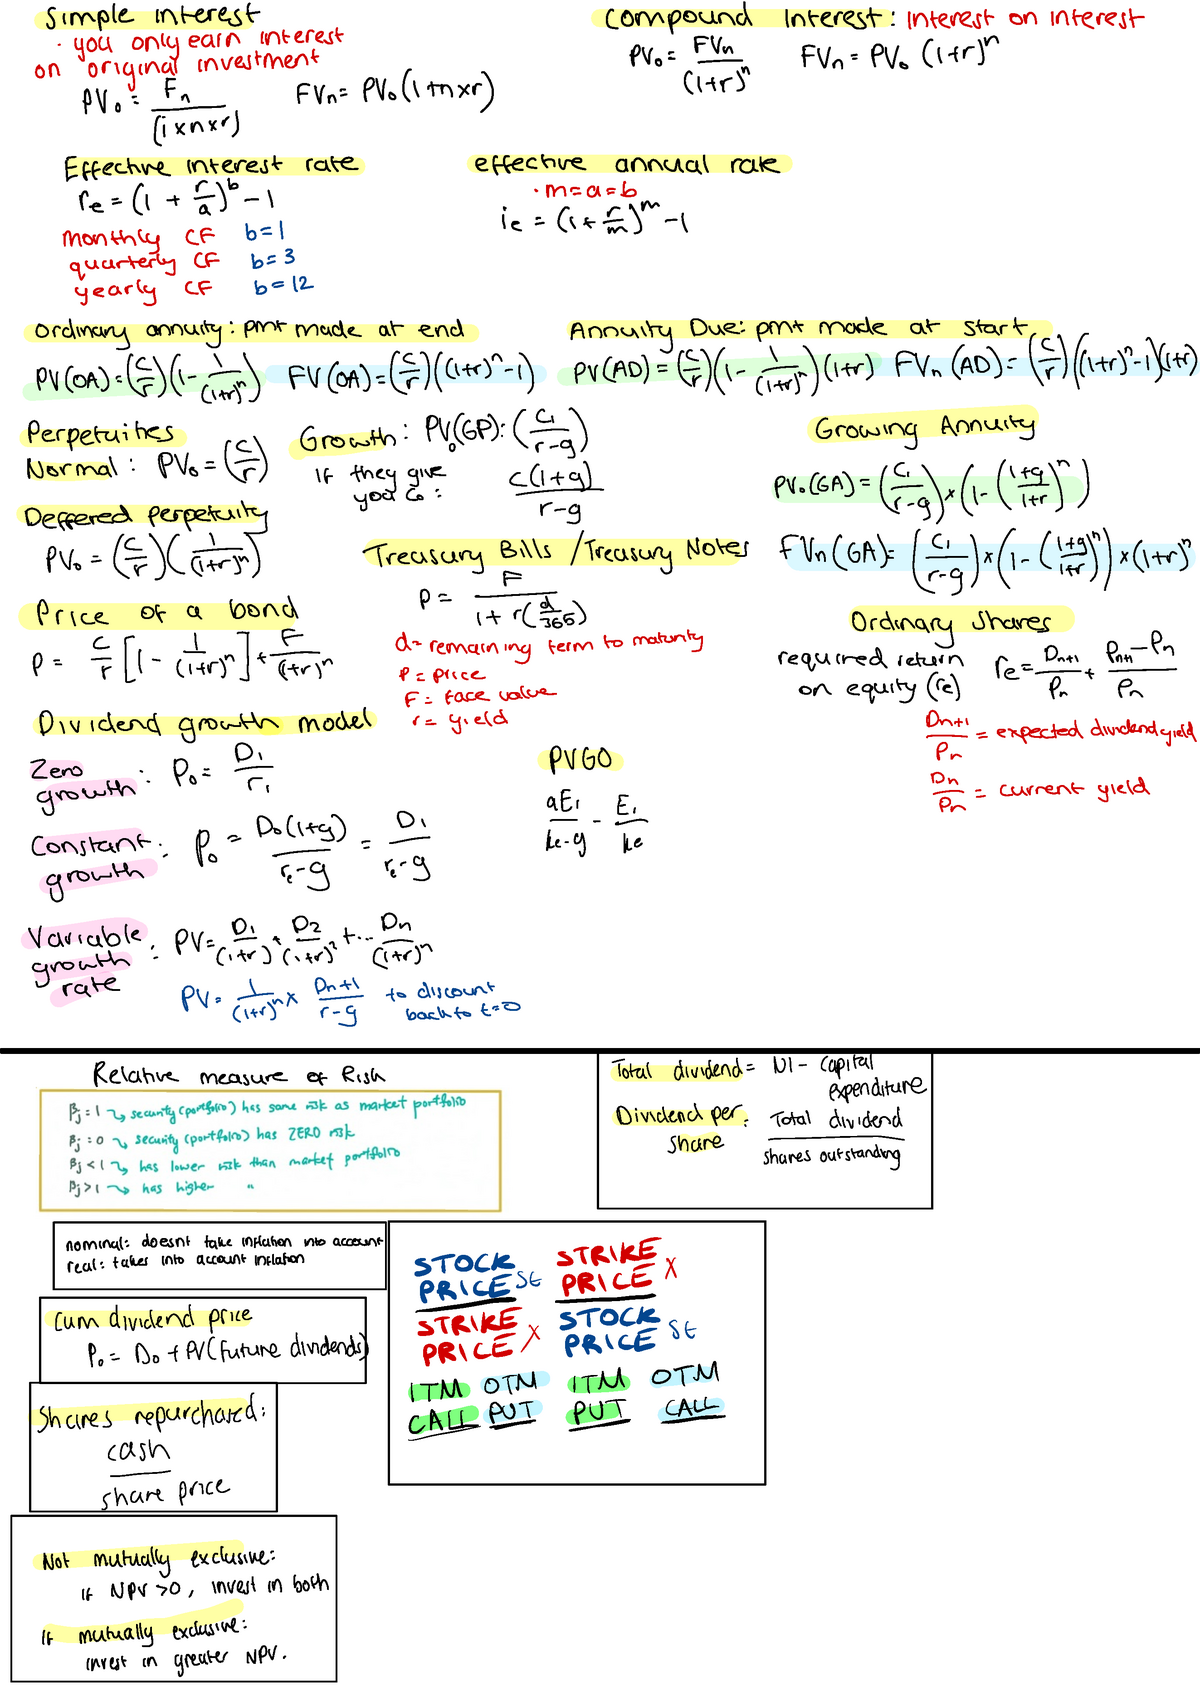 Simple interest
· you only earn interest
on original investment
PV₀ = Fn / (1×n×r)
FVn = PV₀(1+n×r)
Compound Interest: Interest on interest
PV₀ = FVn / (1+r)ⁿ
FVn = PV₀ (1+r)ⁿ
Effective interest rate
re = (1 + r/a)ᵇ - 1
monthly CF b=1
quarterly CF b=3
yearly CF b=12
effective annual rate
· m=a=b
ie = (1+ r/m)ᵐ - 1
Ordinary annuity: pmt made at end
PV(OA) = (C/r)(1 - 1/(1+r)ⁿ)
FV(OA) = (C/r)((1+r)ⁿ-1)
Annuity Due: pmt made at start
PV(AD) = (C/r)(1 - 1/(1+r)ⁿ)(1+r)
FVn (AD) = (C/r)((1+r)ⁿ-1)(1+r)
Perpetuities
Normal: PV₀ = (C/r)
Growth: PV₀(GP): (C₁/r-g)
If they give
you C₀:
C(1+g) / r-g
Growing Annuity
PV₀(GA) = (C₁/r-g) × (1 - (1+g/1+r)ⁿ)
FVn(GA) = (C₁/r-g) × (1 - (1+g/1+r)ⁿ) × (1+r)ⁿ
Deffered perpetuity
PV₀ = (C/r)(1/(1+r)ⁿ)
Treasury Bills / Treasury Notes
P = F / 1+ r(d/365)
d = remaining term to maturity
P = price
F = face value
r = yield
Price of a bond
P = C/r [1 - 1/(1+r)ⁿ] + F/(1+r)ⁿ
Ordinary shares
required return
on equity (re)
re = Dn+1/Pn + Pn+1-Pn/Pn
Dn+1/Pn = expected dividend yield
Dn/Pn = current yield
Dividend growth model
Zero
growth: P₀ = D₁/r₁
Constant
growth: P₀ = D₀(1+g)/re-g = D₁/re-g
PVGO
aE₁/ke-g - E₁/ke
Variable
growth
rate: PV = D₁/(1+r) + D₂/(1+r)² + ... Dn/(1+r)ⁿ
PV = 1/(1+r)ⁿ × Dn+1/r-g to discount
back to t=0
Relative measure of Risk
βj = 1 ↝ security (portfolio) has same risk as market portfolio
βj = 0 ↝ security (portfolio) has ZERO risk
βj < 1 ↝ has lower risk than market portfolio
βj > 1 ↝ has higher "
Total dividend = NI - Capital
expenditure
Dividend per
share: Total dividend / shares outstanding
nominal: doesnt take inflation into account
real: takes into account inflation
STOCK
PRICE St
STRIKE
PRICE X
STRIKE
PRICE X
STOCK
PRICE St
ITM OTM ITM OTM
CALL PUT PUT CALL
Cum dividend price
P₀ = D₀ + PV(future dividends)
Shares repurchased:
cash
share price
Not mutually exclusive:
If NPV >0, invest in both
If mutually exclusive:
invest in greater NPV.